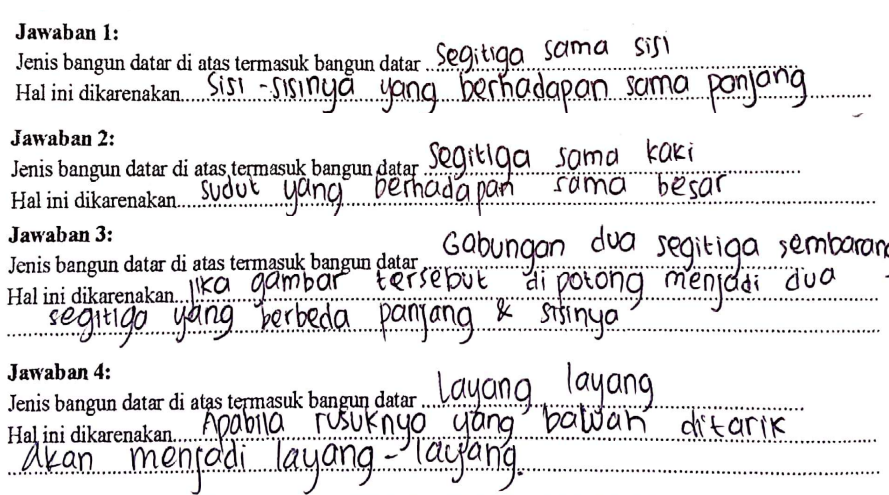 Jawaban 1:
Jenis bangun datar di atas termasuk bangun datar Segitiga sama sisi
Hal ini dikarenakan sisi - sisinya yang berhadapan sama panjang
Jawaban 2:
Jenis bangun datar di atas termasuk bangun datar Segitiga sama kaki
Hal ini dikarenakan sudut yang berhadapan sama besar
Jawaban 3:
Jenis bangun datar di atas termasuk bangun datar Gabungan dua segitiga sembarang
Hal ini dikarenakan jika gambar tersebut di potong menjadi dua
segitiga yang berbeda panjang & sisinya
Jawaban 4:
Jenis bangun datar di atas termasuk bangun datar Layang layang
Hal ini dikarenakan Apabila rusuknya yang bawah ditarik
akan menjadi layang - layang.